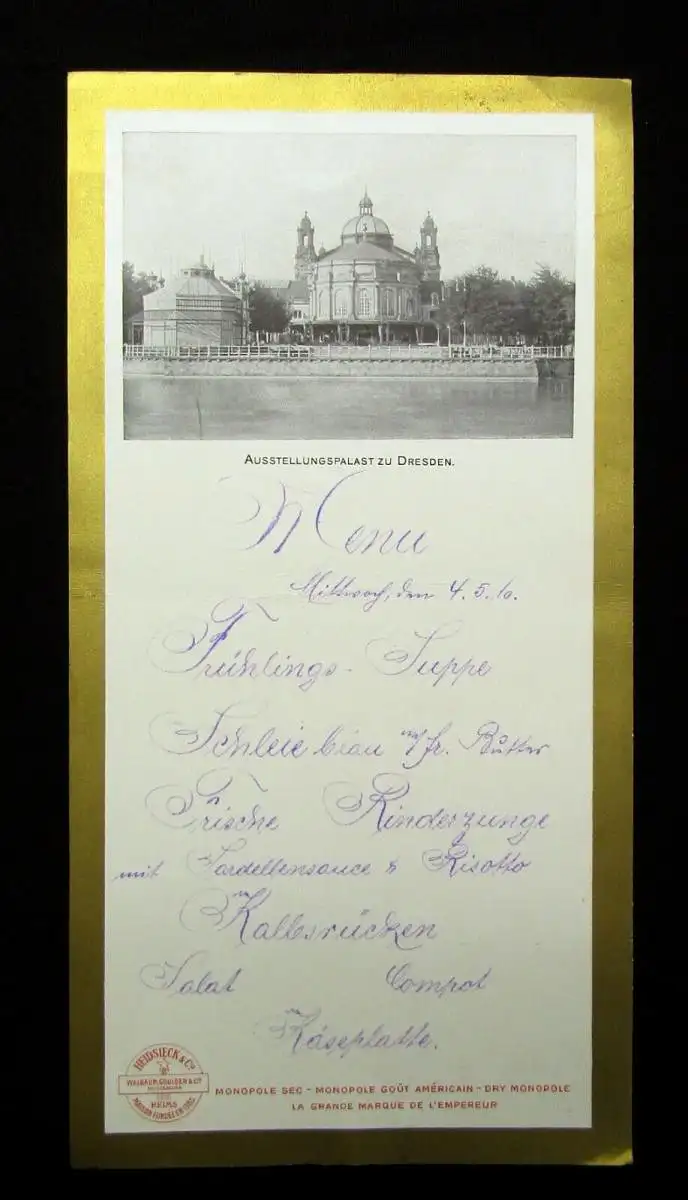 AUSSTELLUNGSPALAST ZU DRESDEN.
Menu
Mittwoch, den 4. 5. 10.
Frühlings-Suppe
Schleie blau m/fr. Butter
Frische Rinderzunge
mit Sardellensauce & Risotto
Kalbsrücken
Salat Compot
Käseplatte.
HEIDSIECK & Co
WALBAUM, GOULDEN & Co
REIMS
MAISON FONDÉE EN 1785
MONOPOLE SEC - MONOPOLE GOÛT AMÉRICAIN - DRY MONOPOLE
LA GRANDE MARQUE DE L'EMPEREUR